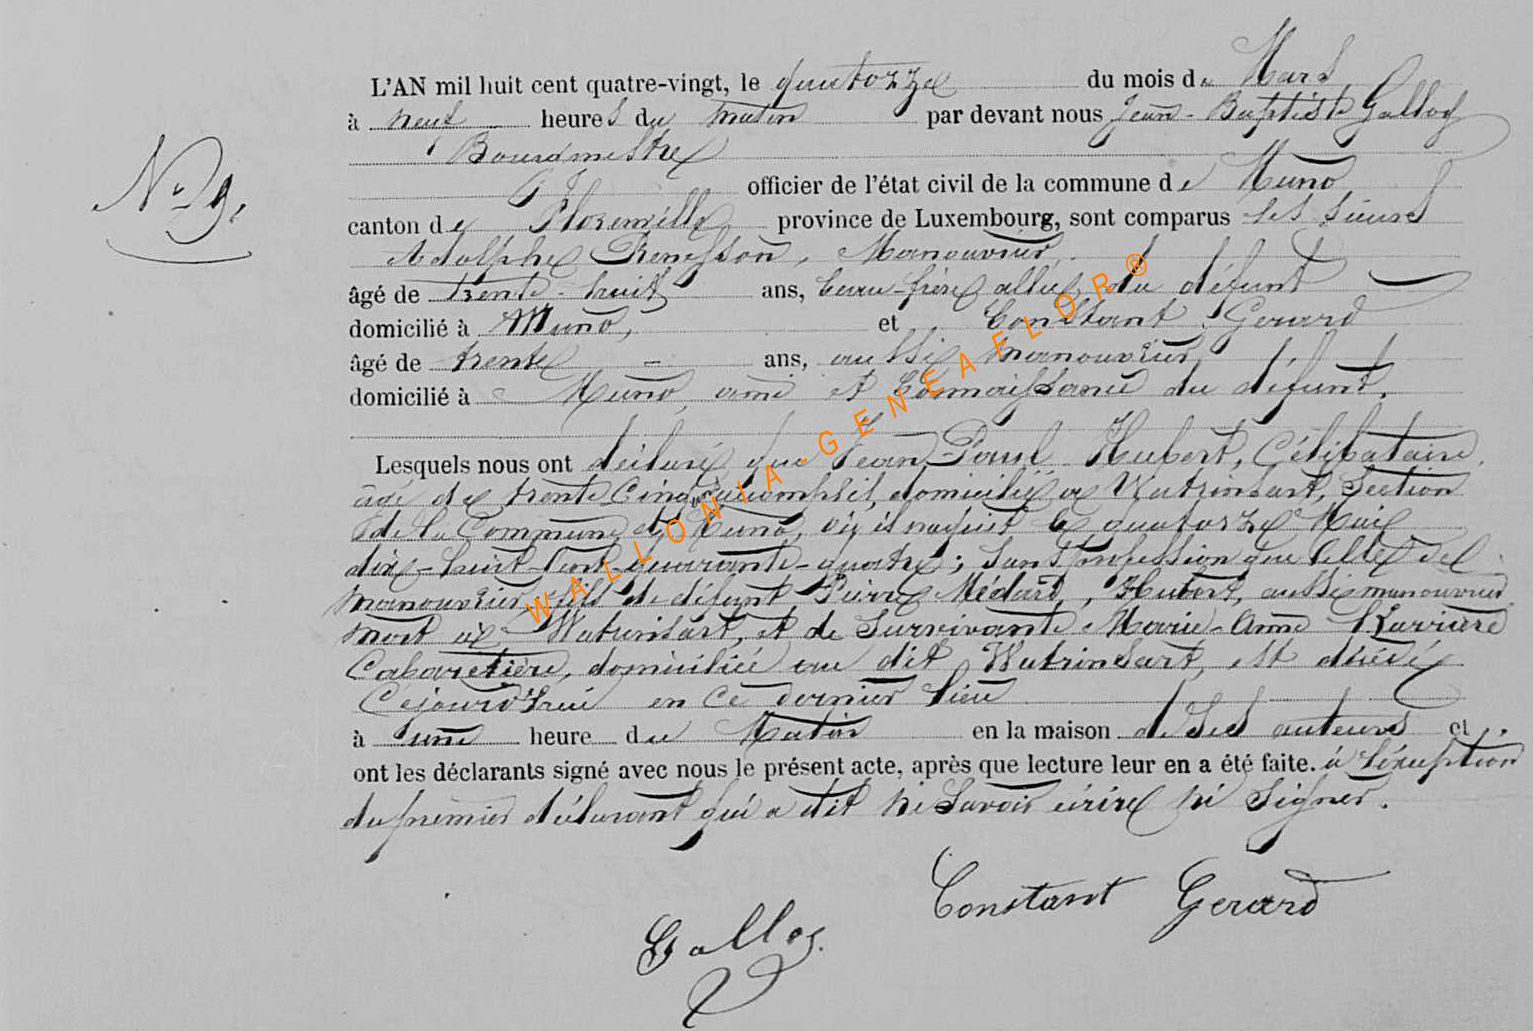 L'AN mil huit cent quatre-vingt, le quatorze du mois de Mars
à neuf heures du matin par devant nous Jean-Baptiste Galloy
Bourgmestre
officier de l'état civil de la commune de Muno,
canton de Florenville province de Luxembourg, sont comparus les sieurs
Adolphe Renesson, Manouvrier,
âgé de trente-huit ans, beau-frère allié du défunt
domicilié à Muno, et Constant Gerard
âgé de trente ans, aussi manouvrier
domicilié à Muno, ami et Connaissance du défunt.
Lesquels nous ont déclaré que Jean-Paul Hubert, Célibataire,
âgé de trente Cinq ans accomplis, domicilié à Watrinsart, Section
de la Commune de Muno, où il naquit le quatorze Mai
dix-huit-Cent-quarante-quatre; sans profession que celle de
manouvrier, fils de défunt Pierre Médard, Hubert, aussi manouvrier
mort à Watrinsart, et de Survivante Marie-Anne
Cabaretière, domiciliée au dit Watrinsart, est décédé
Cejourd'hui en ce dernier lieu
à une heure du Matin en la maison de ses auteurs et
ont les déclarants signé avec nous le présent acte, après que lecture leur en a été faite. à l'exception
du premier déclarant qui a dit ni savoir écrire ni signer.
Constant Gerard
Galloy.
N° 9.
WALLONIA-GENEAFLOR®